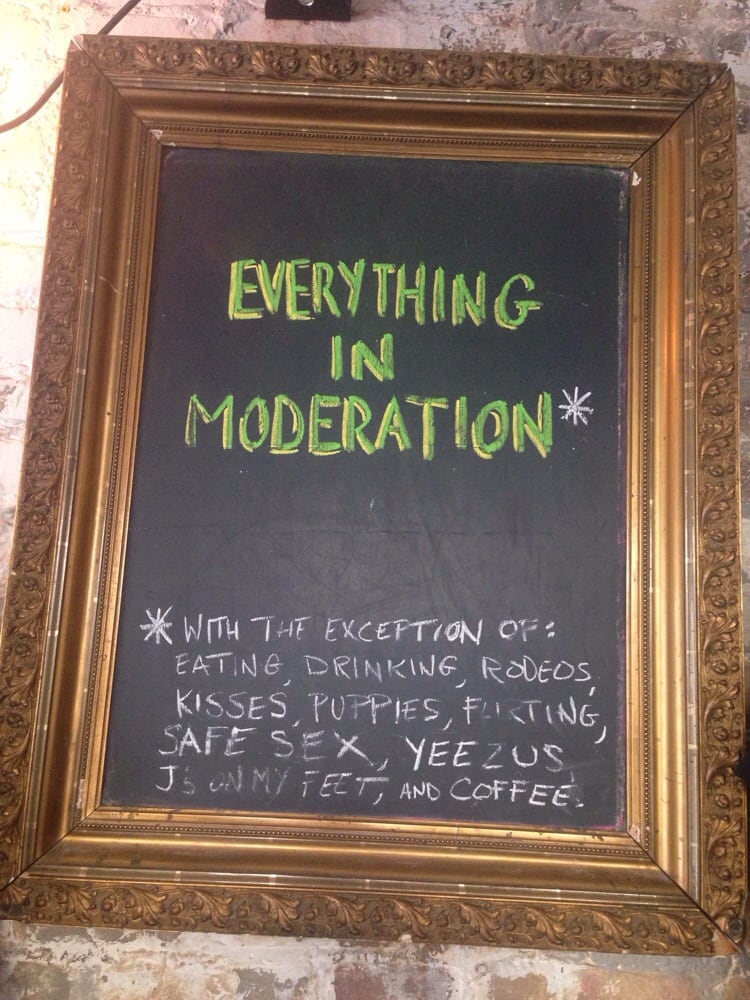 EVERYTHING
IN
MODERATION*
* WITH THE EXCEPTION OF:
EATING, DRINKING, RODEOS,
KISSES, PUPPIES, FLIRTING,
SAFE SEX, YEEZUS,
J's ON MY FEET, AND COFFEE.